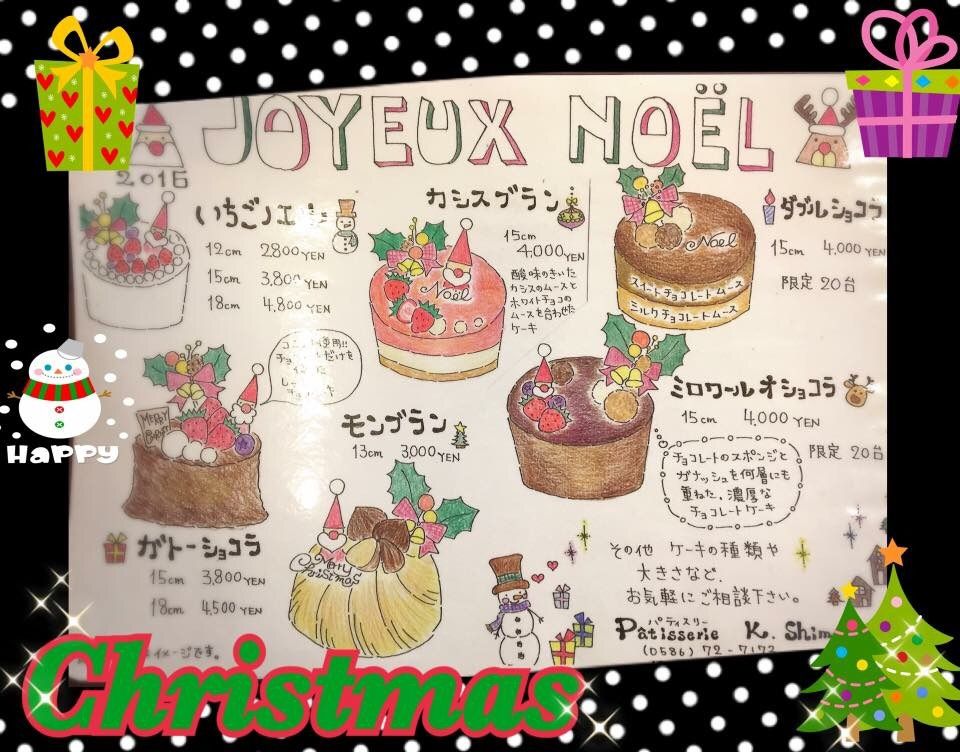 JOYEUX NOËL
2016
いちごノエル
12cm 2,800 YEN
15cm 3,800 YEN
18cm 4,800 YEN
カシスブラン
15cm
4,000 YEN
酸味のきいた
カシスのムースと
ホワイトチョコの
ムースを合わせた
ケーキ
Noël
ダブルショコラ
15cm 4,000 YEN
限定 20台
Noel
スイートチョコレートムース
ミルクチョコレートムース
HAPPY
MERRY
ガトーショコラ
15cm 3,800 YEN
18cm 4,500 YEN
モンブラン
13cm 3,000 YEN
Merry
Christmas
ミロワールオショコラ
15cm 4,000 YEN
限定 20台
チョコレートのスポンジと
ガナッシュを何層にも
重ねた、濃厚な
チョコレートケーキ
その他 ケーキの種類や
大きさなど、
お気軽にご相談下さい。
パティスリー
Pâtisserie K. Shim
(0586) 72-7172
イメージです。
Christmas